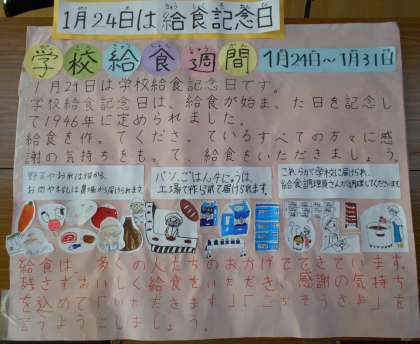 1月24日は給食記念日
学校給食週間 1月24日～1月31日
1月24日は学校給食記念日です。
学校給食記念日は、給食が始まった日を記念し
て1946年に定められました。
給食を作ってくださっているすべての方々に感
謝の気持ちをもって給食をいただきましょう。
野菜やお米は畑から、
お肉やたまごは農場から届けられます
パン、ごはん、牛にゅうは
工場で作られて届けられます。
これらが学校に届けられ、
給食調理員さんが調理してくださいます
給食は、多くの人たちのおかげでできています。
残さずおいしく給食をいただき、感謝の気持ち
を込めて「いただきます」「ごちそうさま」を
言うようにしましょう。